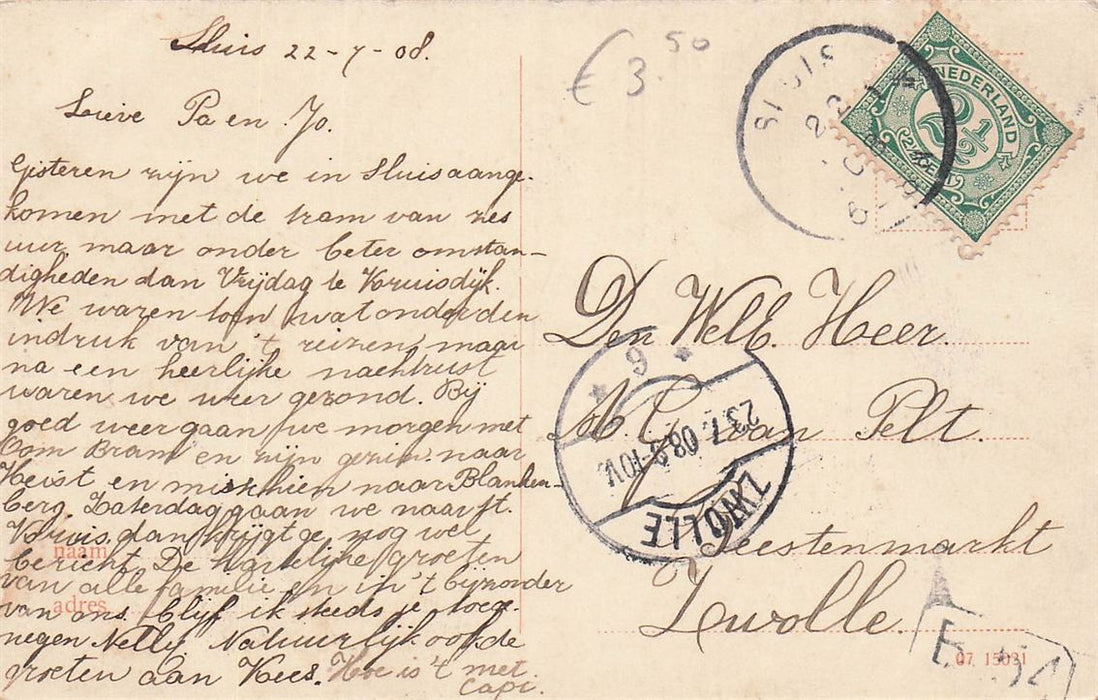 Sluis 22-7-08.
Lieve Pa en Jo.
Gisteren zijn we in Sluis aange-
komen met de tram van zes
uur, maar onder beter omstan-
digheden dan Vrijdag te Kruisdijk.
We waren toen wat onder den
indruk van 't reizen, maar
na een heerlijke nachtrust
waren we weer gezond. Bij
goed weer gaan we morgen met
Oom Bram en zijn gezin naar
Heist en misschien naar Blanken-
berg. Zaterdag gaan we naar St.
Kruis, dan krijgt ge nog wel
bericht. De hartelijke groeten
van alle familie en in 't byzonder
van ons. Blijf ik steeds je toege-
negen Nelly. Natuurlijk ook de
groeten aan Kees. Hoe is 't met
Capi.
naam
adres
€ 3.50
SLUIS
NEDERLAND
2½
CENT
Den WelE. Heer.
A. G. van Pelt.
Beestenmarkt
Zwolle.
* 9 *
23.7.08.9-10V.
ZWOLLE
07 15031